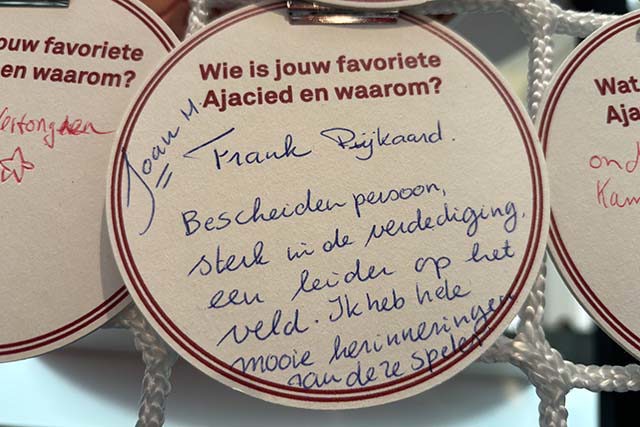 ouw favoriete
en waarom?
Vertonghen
Wie is jouw favoriete
Ajacied en waarom?
Joan M.
Frank Rijkaard.
Bescheiden persoon,
sterk in de verdediging,
een leider op het
veld. Ik heb hele
mooie herinneringen
aan deze speler
Wat
Aja
ond
Kam